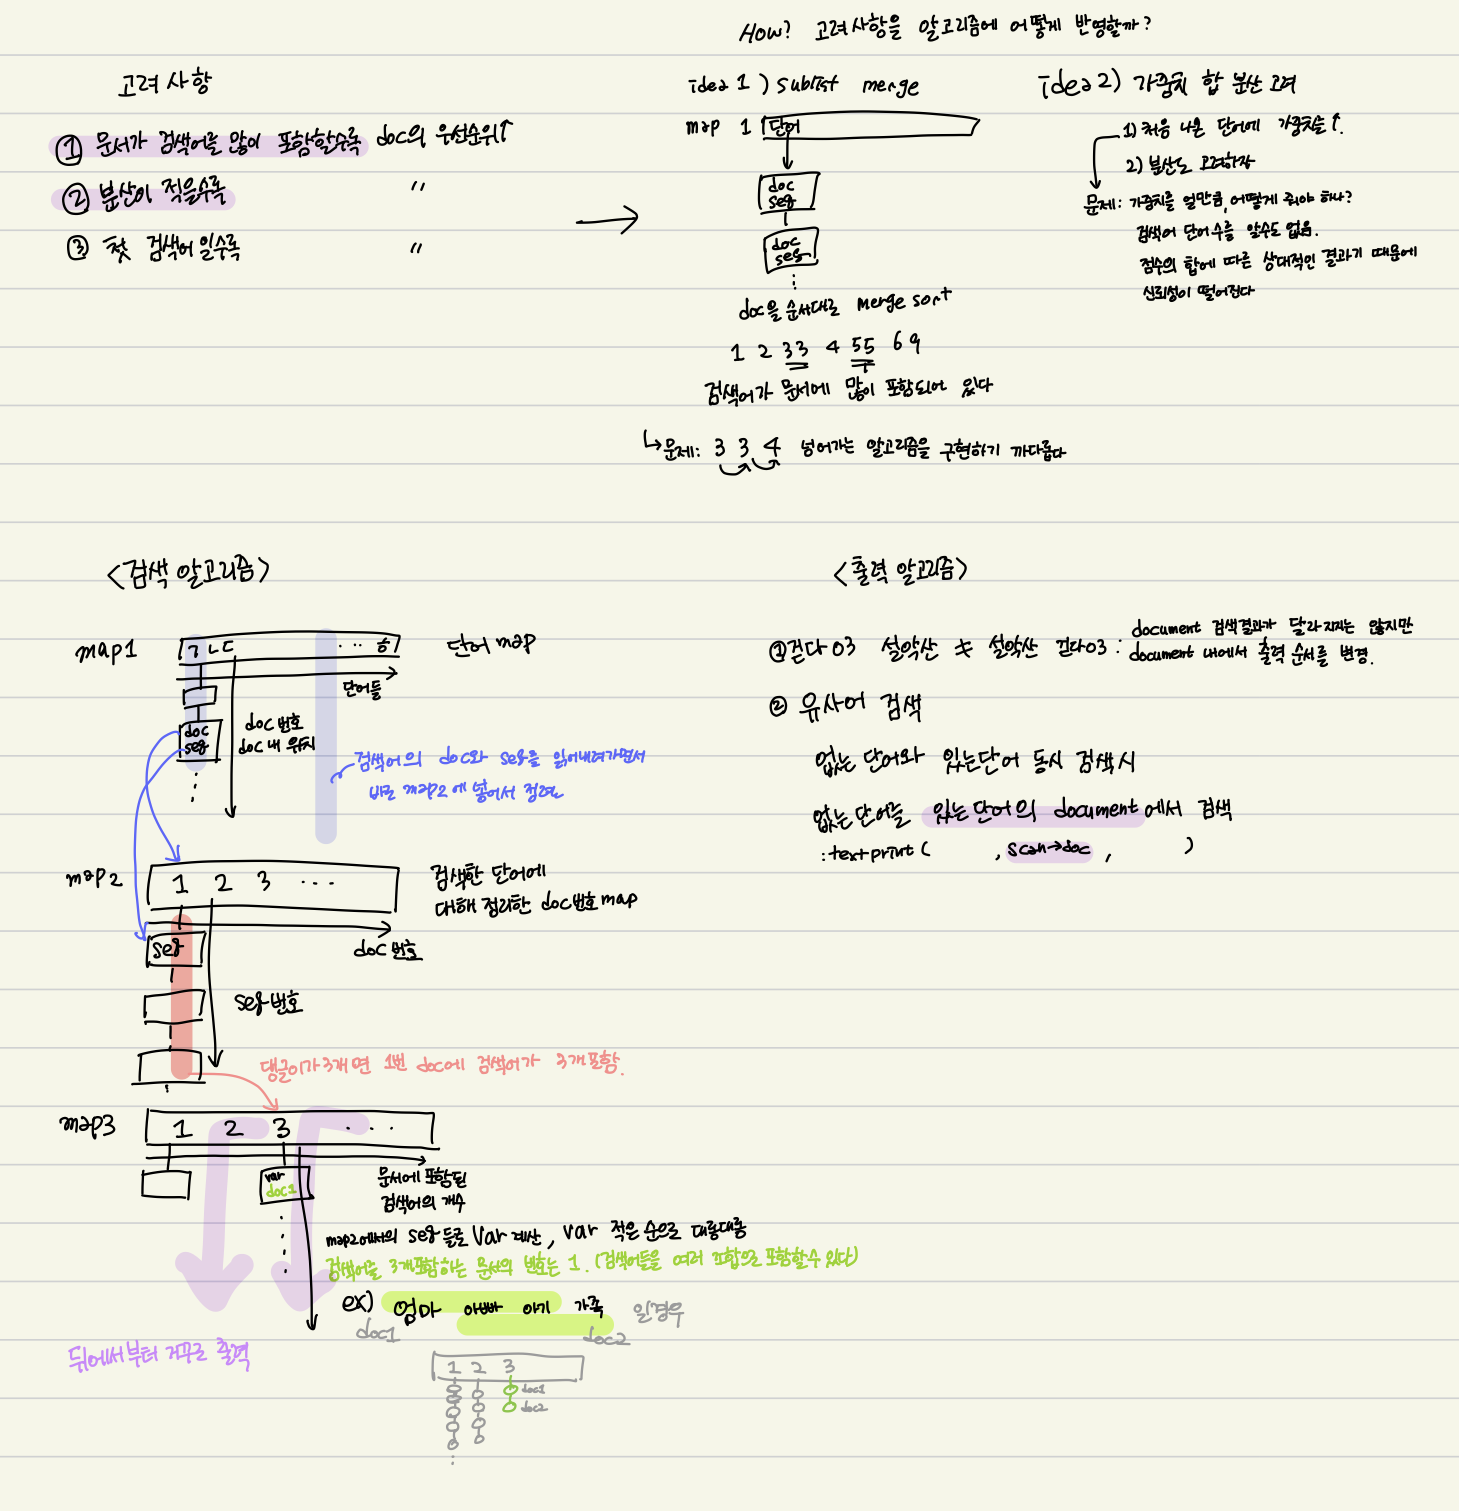 How? 고려사항을 알고리즘에 어떻게 반영할까?
고려사항
① 문서가 검색어를 많이 포함할수록 doc의 우선순위↑
② 분산이 적을수록 〃
③ 첫 검색어일수록 〃
idea 1) sublist merge
map 1 단어
doc
seq
doc
seq
⋮
doc을 순서대로 merge sort
1 2 33 4 55 6 9
검색어가 문서에 많이 포함되어 있다
↳문제: 3 3 4 넘어가는 알고리즘을 구현하기 까다롭다
idea 2) 가중치 합 분산 고려
1) 처음 나온 단어에 가중치를↑.
2) 분산도 고려하장
문제: 가중치를 얼만큼, 어떻게 줘야 하나?
검색어 단어 수를 알수도 없음.
점수의 합에 따른 상대적인 결과기 때문에
신뢰성이 떨어진다
<검색 알고리즘>
map1 ㄱ ㄴ ㄷ ··· ㅎ 단어 map
단어들
doc
seq
⋮
doc 번호
doc 내 위치
검색어의 doc와 seq를 읽어내려가면서
바로 map2에 넣어서 정렬
map2 1 2 3 ··· 검색한 단어에
대해 정리한 doc번호 map
doc 번호
seq
seq 번호
댕글이가 3개면 1번 doc에 검색어가 3개 포함.
map3 1 2 3 ···
var
doc1
문서에 포함된
검색어의 개수
map2에서의 seq들로 Var 계산, var 적은 순으로 대롱대롱
검색어를 3개포함하는 문서의 번호는 1. (검색어들을 여러 조합으로 포함할수 있다)
ex) 엄마 아빠 아기 가족 일경우
doc1 doc2
1 2 3
doc1
doc2
뒤에서부터 거꾸로 출력
<출력 알고리즘>
① 걷다03 설악산 ≠ 설악산 걷다03 : document 검색결과가 달라지지는 않지만
document 내에서 출력 순서를 변경.
② 유사어 검색
없는 단어와 있는단어 동시 검색시
없는 단어를 있는 단어의 document에서 검색
: textprint ( , scan→doc , )